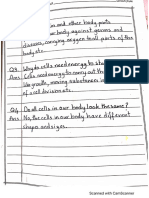 and other body parts
our body against germs and
diseases, carrying oxygen to all parts of the
body etc.
Q3. Why do cells need energy to
Ans Cells need energy to carry out the
like growth, making substances in
of cell division etc.
Q4 Do all cells in our body look the same?
Ans No, the cells in our body have different
shapes and sizes.
Scanned with CamScanner